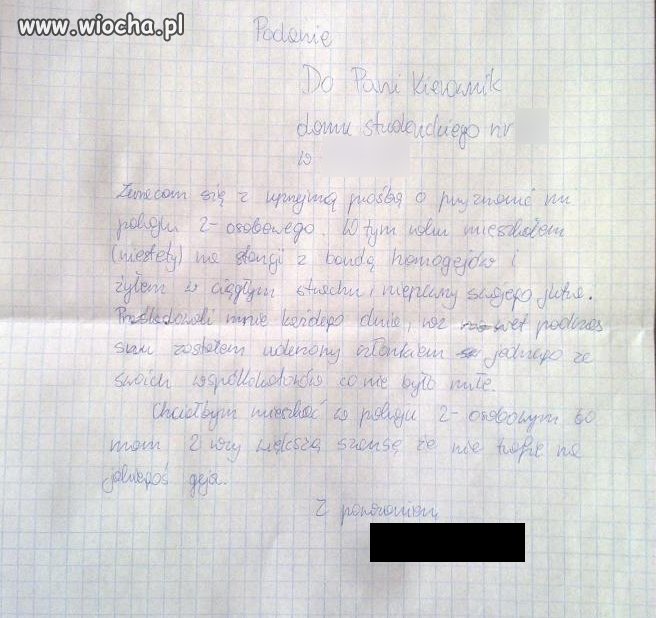 www.wiocha.pl
Podanie
Do Pani Kierownik
domu studenckiego nr
w
Zwracam się z uprzejmą prośbą o przyznanie mi
pokoju 2-osobowego. W tym roku mieszkałem
(niestety) na stancji z bandą homogejów i
żyłem w ciągłym strachu i niepewny swojego jutra.
Prześladowali mnie każdego dnia, raz nawet podczas
snu zostałem uderzony członkiem jednego ze
swoich współlokatorów co nie było miłe.
Chciałbym mieszkać w pokoju 2-osobowym bo
mam 2 razy większą szansę że nie trafię na
jakiegoś geja.
Z poważaniem,